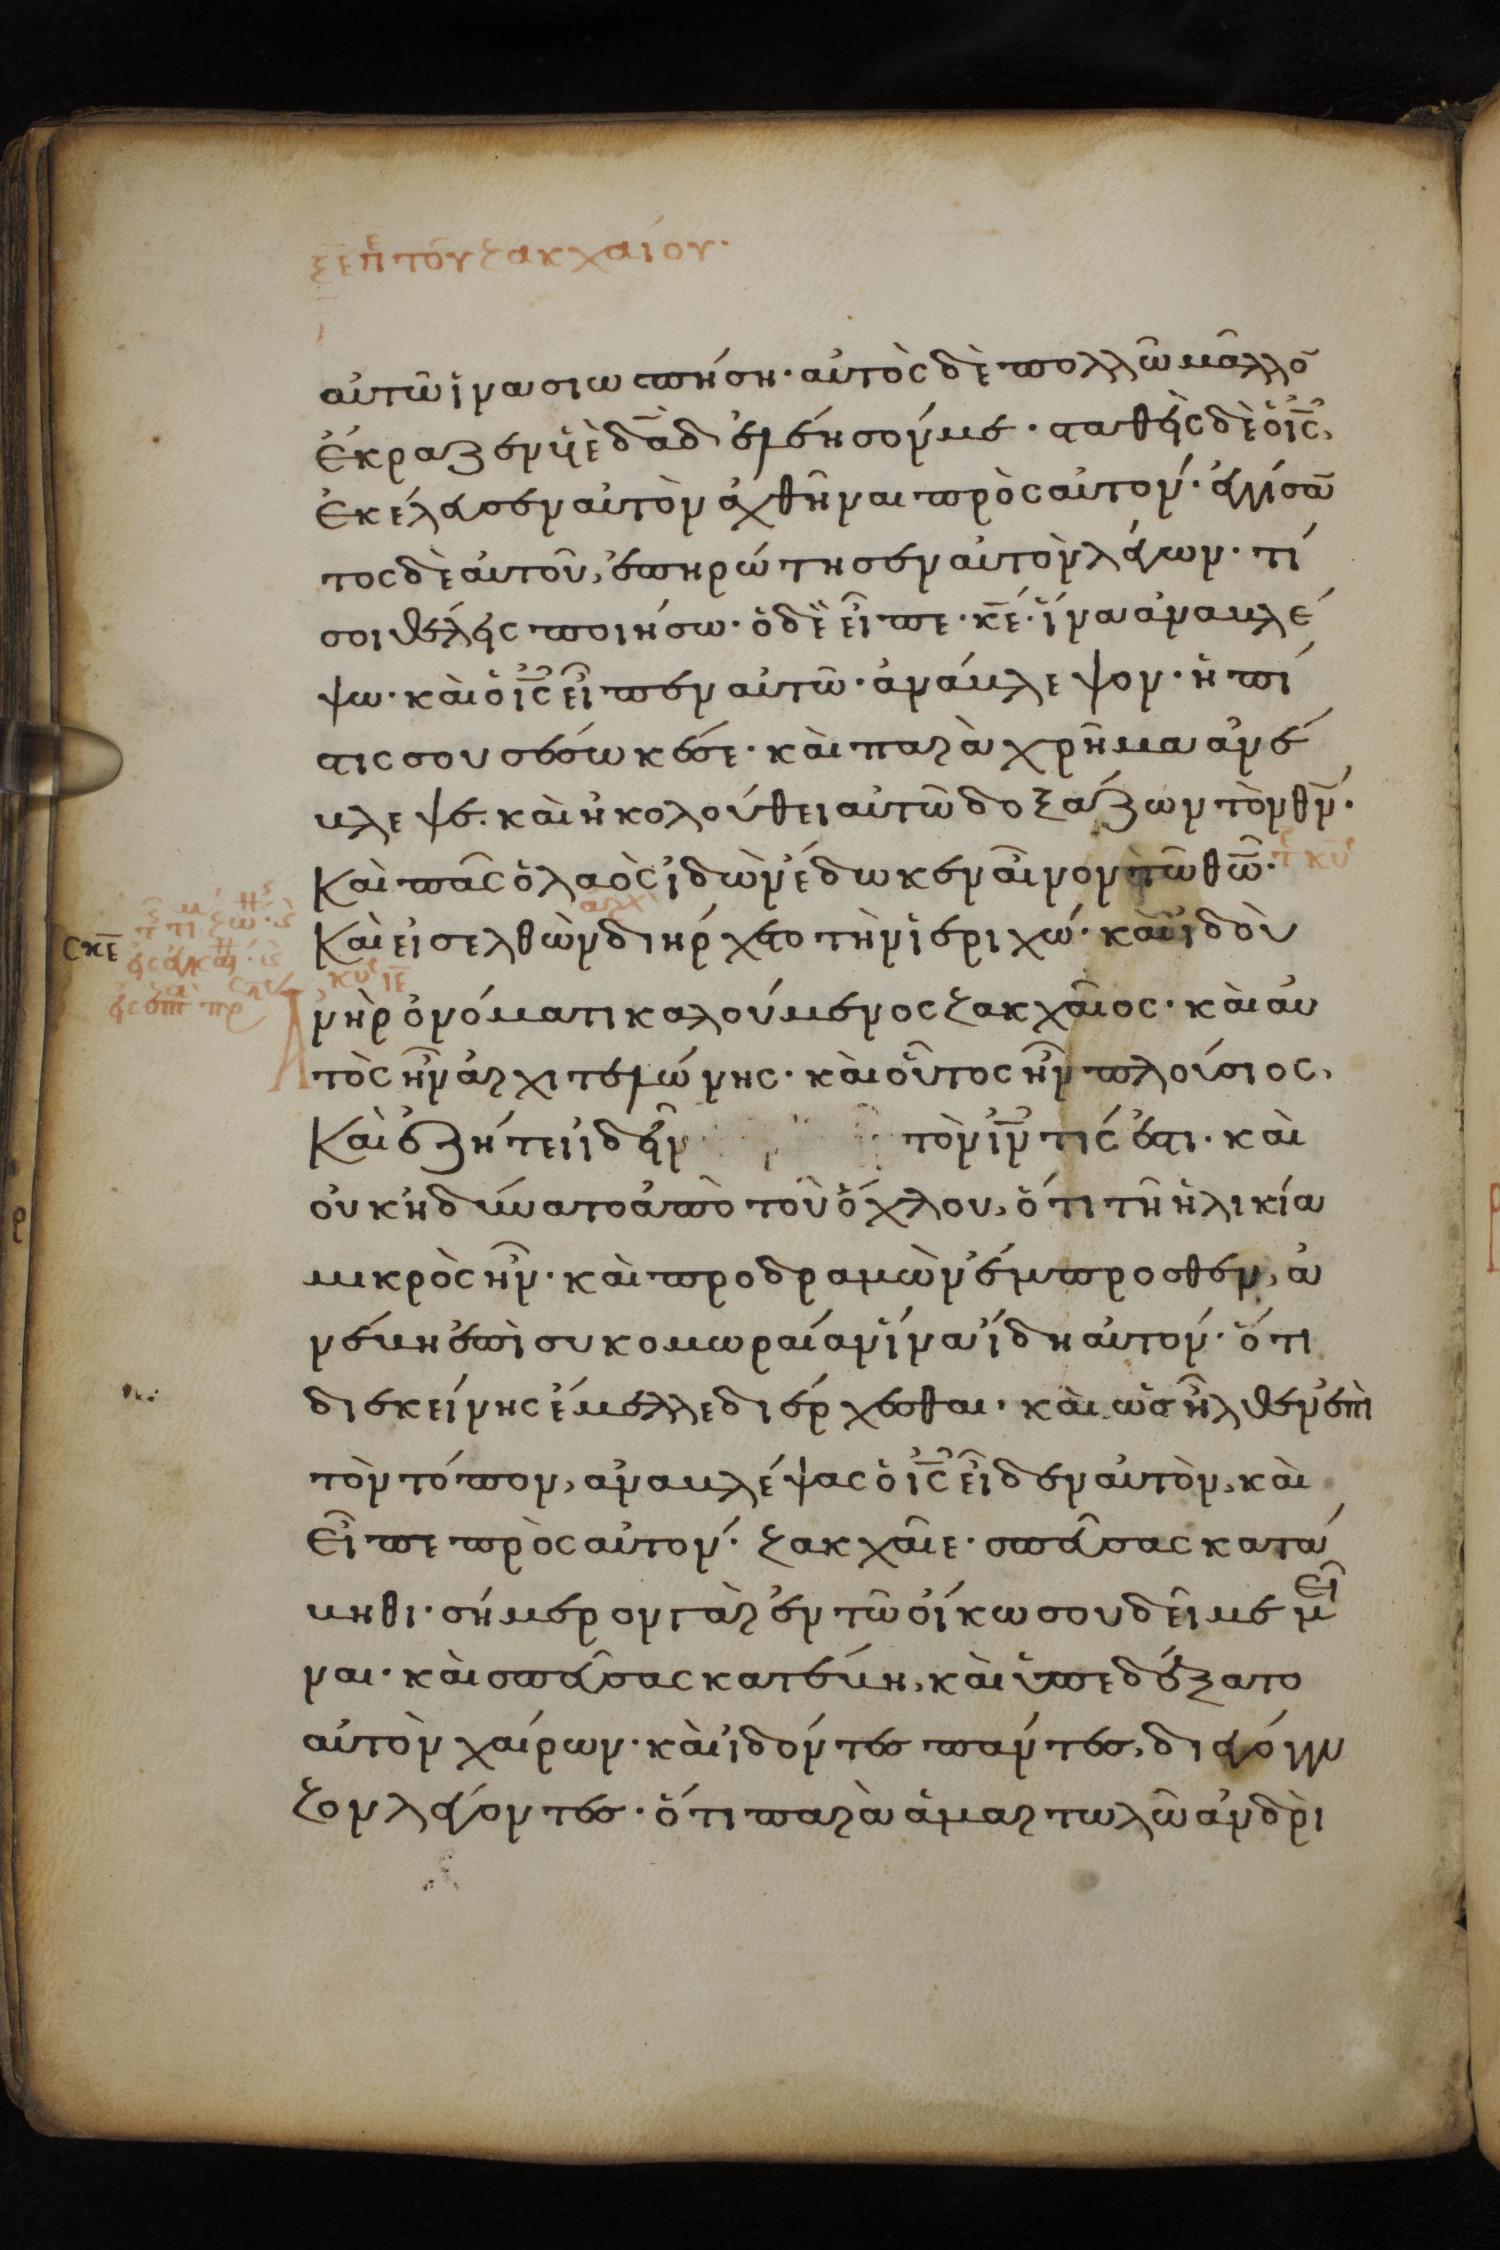 ξε πε του ζακχαίου·
αὐτῶ ἵνα σιωπήση· αὐτὸς δὲ πολλῶ μᾶλλο̄
ἔκραζεν υἱὲ δ̅α̅δ̅ ἐλέησόν με· σταθεὶς δὲ ὁ ι̅ς̅,
ἐκέλευσεν αὐτὸν ἀχθῆναι πρὸς αὐτόν· ἐγγίσα̅
τος δὲ αὐτοῦ, ἐπηρώτησεν αὐτὸν λέγων· τί
σοι θέλεις ποιήσω· ὁ δὲ εἶπε· κ̅ε̅· ἵνα ἀναβλέ
ψω· καὶ ὁ ι̅ς̅ εἶπεν αὐτῶ· ἀνάβλεψον· ἡ πί
στις σου σέσωκέ σε· καὶ παραχρῆμα ἀνέ
βλεψε· καὶ ἠκολούθει αὐτῶ δοξάζων τὸν θ̅ν̅·
Καὶ πᾶς ὁ λαὸς ἰδὼν ἔδωκεν αἶνον τῶ θ̅ω̅· τε κυ
αρχ
Καὶ εἰσελθὼν διήρχετο τὴν ἱεριχώ· καὶ ἰδοὺ
σκε
κυ ιε
Ἀνὴρ ὀνόματι καλούμενος ζακχαῖος· καὶ αὐ
τὸς ἦν ἀρχιτελώνης· καὶ οὗτος ἦν πλούσιος,
Καὶ ἐζήτει ἰδεῖν τὸν ι̅ν̅ τίς ἐστι· καὶ
οὐκ ἠδύνατο ἀπὸ τοῦ ὄχλου, ὅτι τῆ ἡλικία
μικρὸς ἦν· καὶ προδραμὼν ἔμπροσθεν, ἀ
νέβη ἐπὶ συκομωραίαν ἵνα ἴδη αὐτόν· ὅτι
δι εκείνης ἔμελλε διέρχεσθαι· καὶ ὡς ἦλθεν ἐπὶ
τὸν τόπον, ἀναβλέψας ὁ ι̅ς̅ εἶδεν αὐτὸν, καὶ
εἶπε πρὸς αὐτόν· ζακχαῖε· σπεύσας κατά
βηθι· σήμερον γὰρ ἐν τῶ οἴκω σου δεῖ με μεῖ
ναι· καὶ σπεύσας κατέβη, καὶ ὑπεδέξατο
αὐτὸν χαίρων· καὶ ἰδόντες πάντες, διεγόγγυ
ζον λέγοντες· ὅτι παρὰ ἁμαρτωλῶ ἀνδρὶ